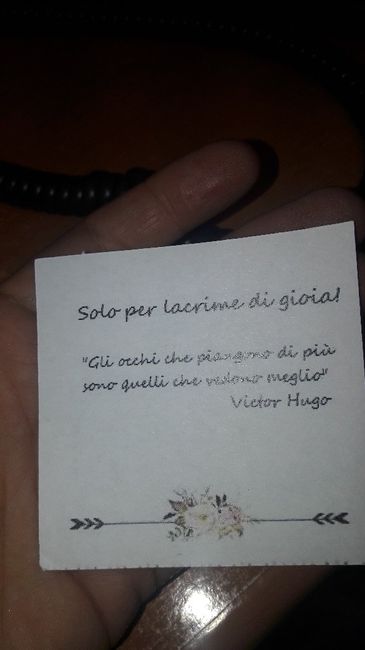 Solo per lacrime di gioia!
"Gli occhi che piangono di più
sono quelli che vedono meglio"
Victor Hugo